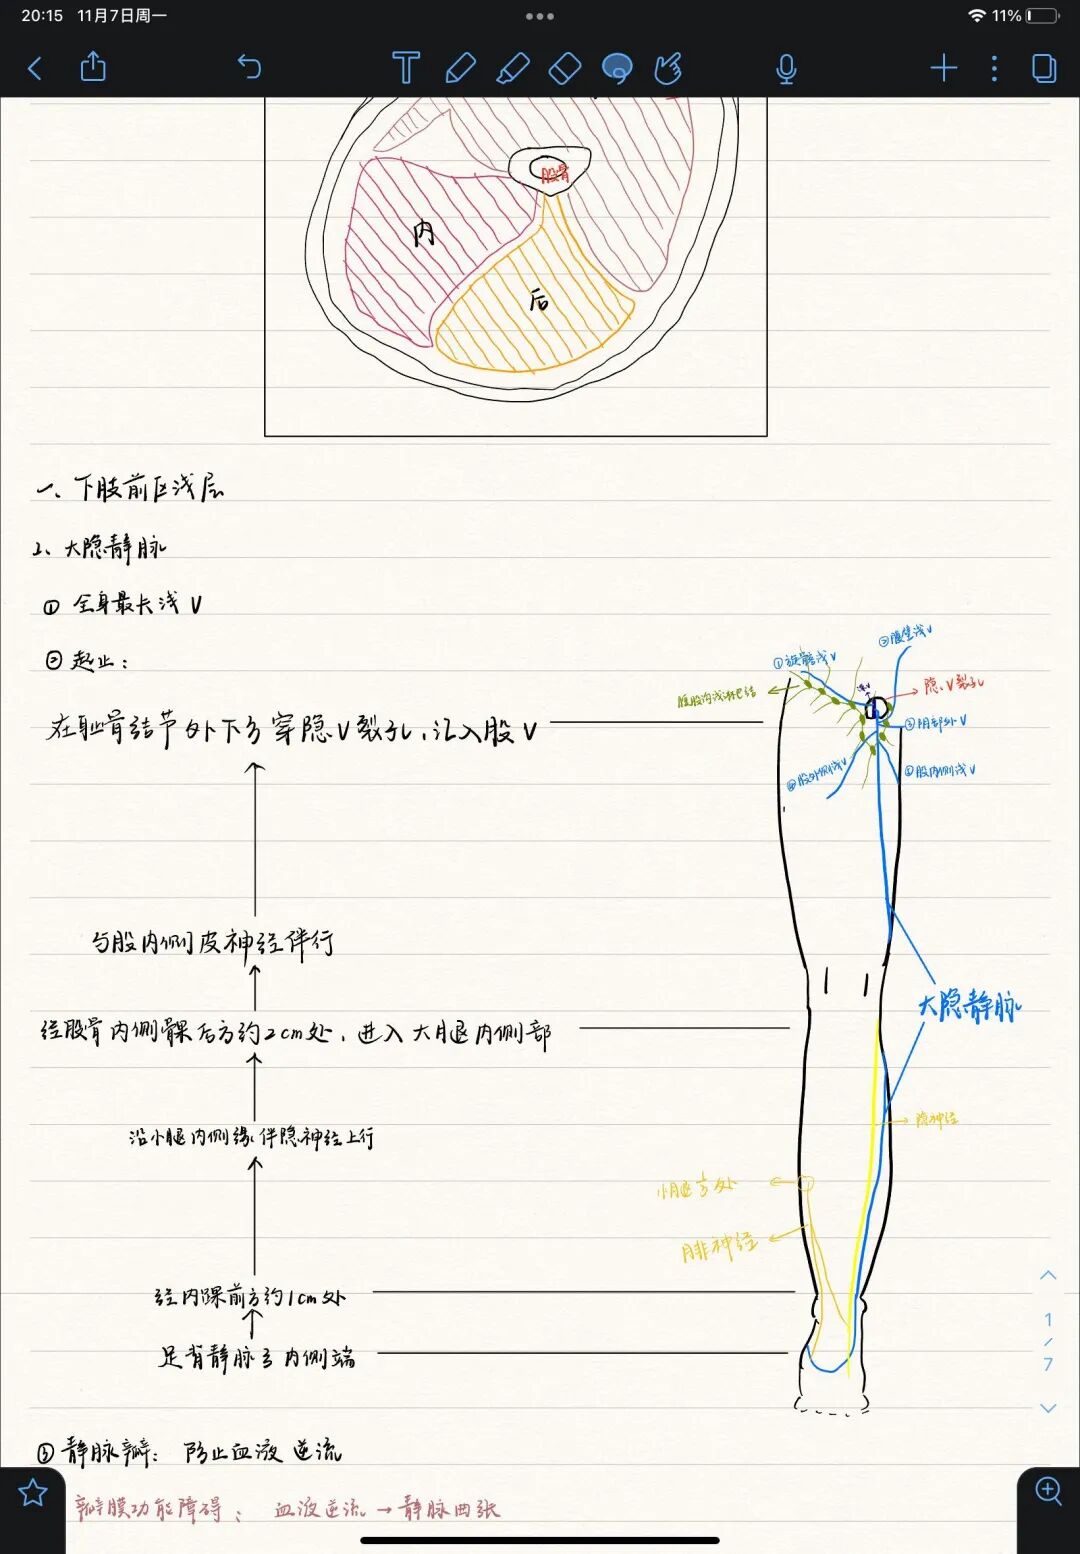 20:15 11月7日周一
11%
股骨
内
后
一、下肢前区浅层
2、大隐静脉
① 全身最长浅V
② 起止：
①旋髂浅V
②腹壁浅V
腹股沟浅淋巴结
隐V裂孔
在耻骨结节外下方穿隐V裂孔，汇入股V
③阴部外V
④股外侧浅V
⑤股内侧浅V
与股内侧皮神经伴行
大隐静脉
经股骨内侧髁后方约2cm处，进入大腿内侧部
沿小腿内侧缘伴隐神经上行
隐神经
腓神经
经内踝前方约1cm处
足背静脉弓内侧端
1/7
③ 静脉瓣：防止血液逆流
瓣膜功能障碍：血液逆流→静脉曲张